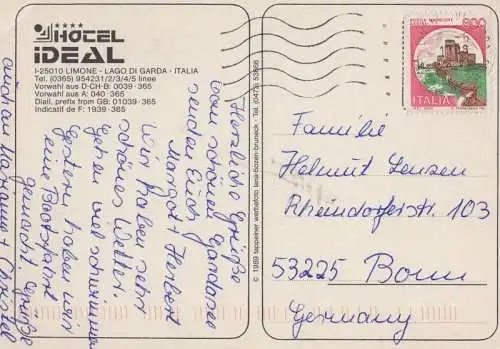 HOTEL
IDEAL
I-25010 LIMONE - LAGO DI GARDA - ITALIA
Tel. (0365) 954231/2/3/4/5 linee
Vorwahl aus D-CH-B: 0039·365
Vorwahl aus A: 040·365
Diall. prefix from GB: 01039·365
Indicatif de F: 1939·365
Herzliche Grüße
vom schönen Gardasee
senden Euch
Margot + Herbert
Wir haben sehr
schönes Wetter.
gehen viel schwimmen
Gestern haben wir
eine Bootsfahrt
gemacht Grüße
auch an Marianne + Christel
© 1989 tappeiner werbefoto lana-bozen-bruneck · Tel. (0473) 53666
800
ITALIA
Familie
Helmut Lenzen
Rheindorferstr. 103
53225 Bonn
Germany